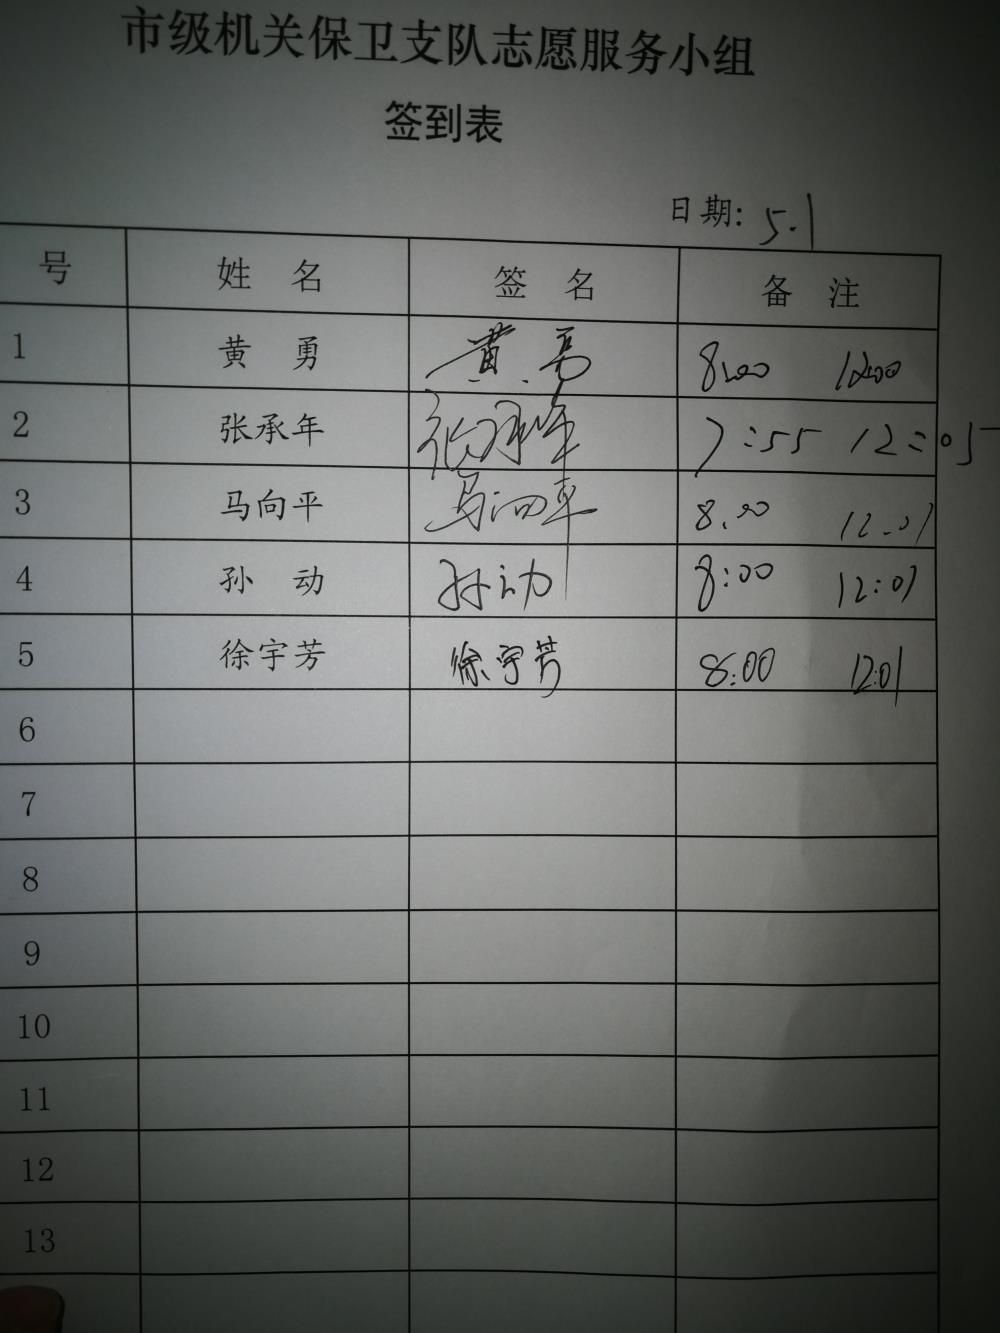 市级机关保卫支队志愿服务小组
签到表
日期: 5.1
号 姓 名 签 名 备 注
1 黄 勇 黄勇 8:00 12:00
2 张承年 张承年 7:55 12:05
3 马向平 马向平 8.00 12.01
4 孙 动 孙动 8:00 12:01
5 徐宇芳 徐宇芳 8:00 12:01
6
7
8
9
10
11
12
13